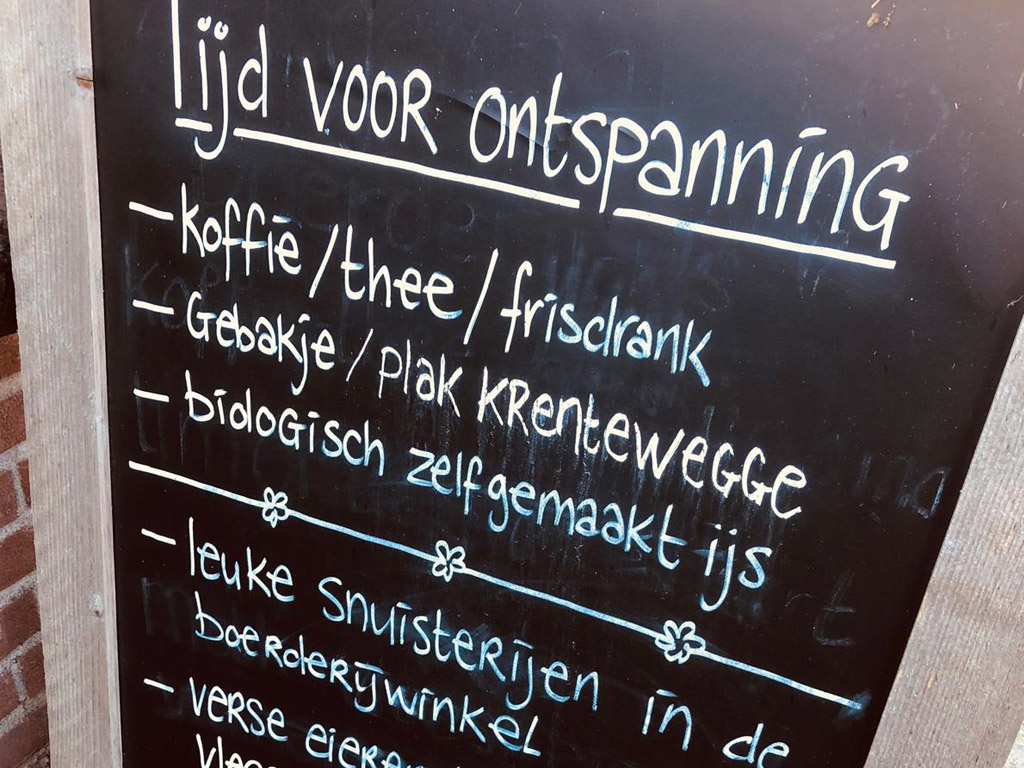 Tijd voor ontspanning
- koffie / thee / frisdrank
- Gebakje / plak krentewegge
- biologisch zelfgemaakt ijs
- leuke snuisterijen in de
boerderijwinkel
- verse